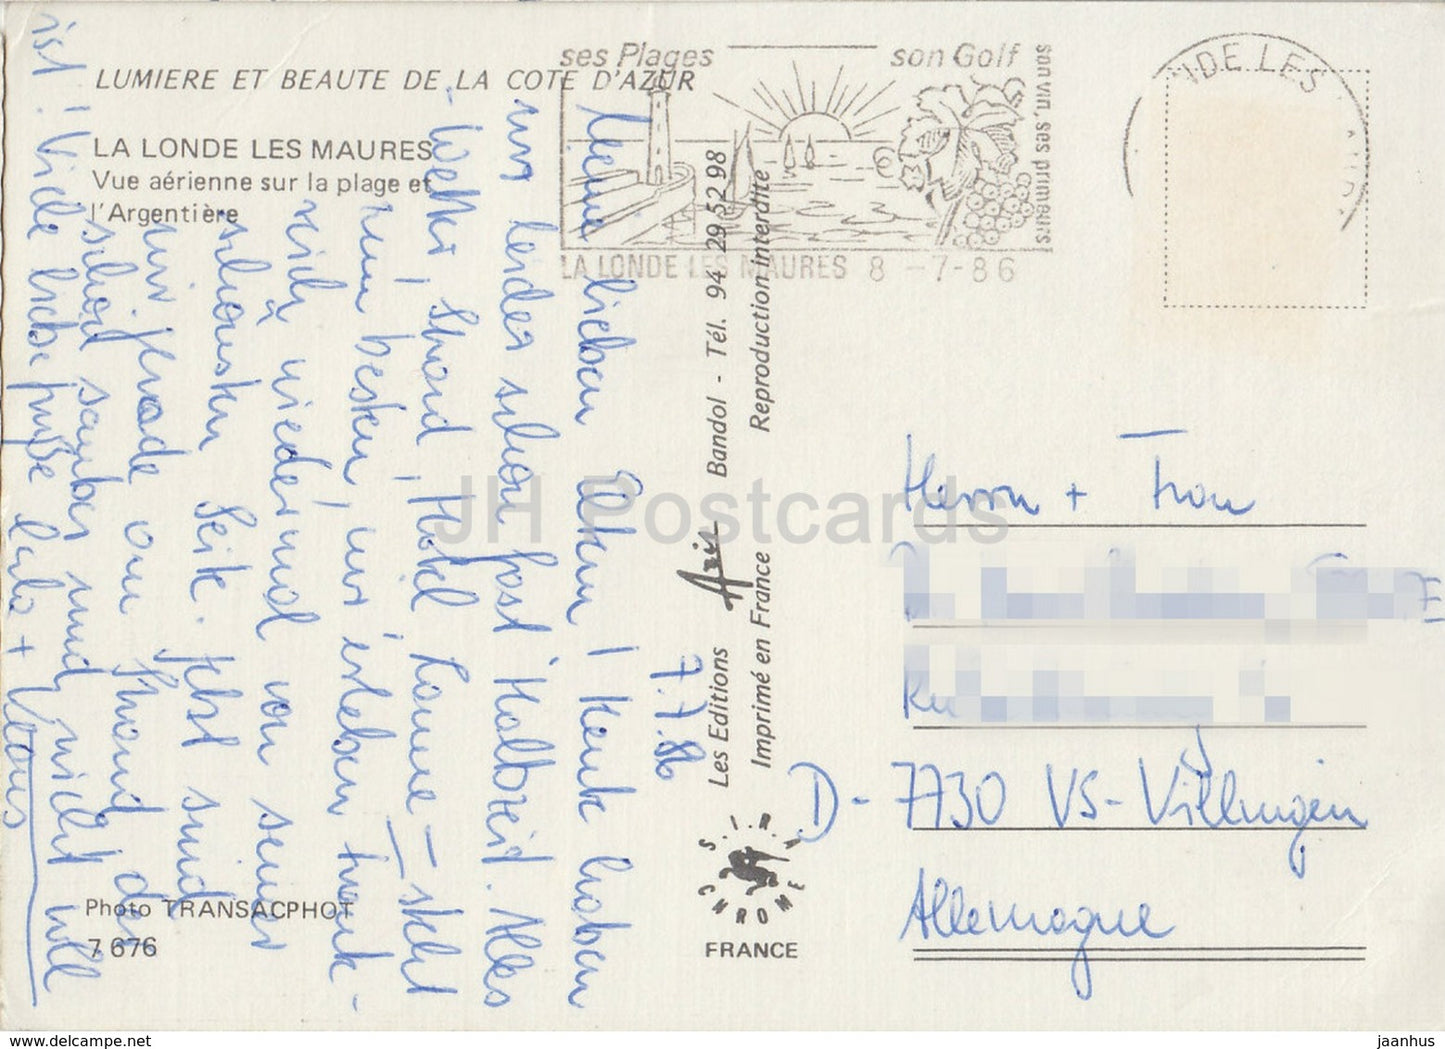 LUMIERE ET BEAUTE DE LA COTE D'AZUR
LA LONDE LES MAURES
Vue aérienne sur la plage et
l'Argentière
ses Plages
son Golf
son vin, ses primeurs
LA LONDE LES MAURES 8 - 7 - 86
DE LES
7.7.86
Meine lieben Eltern! Heute haben
wir leider schon fast Halbzeit. Alles
Wetter, Strand, Hotel Laune – steht
zum besten, wir erleben Frank-
reich wieder mal von seiner
schönsten Seite. Jetzt sind
wir gerade am Strand der
schön sauber und nicht voll
ist! Viele liebe Grüße
Les Editions Aris Bandol - Tél. 94 29 52 98
Imprimé en France Reproduction interdite
S.I.R.A CHROME
FRANCE
Photo TRANSACPHOT
7 676
Herrn + Frau
D-7730 VS-Villingen
Allemagne
JH Postcards
www.hippostcard.com
jaanhus